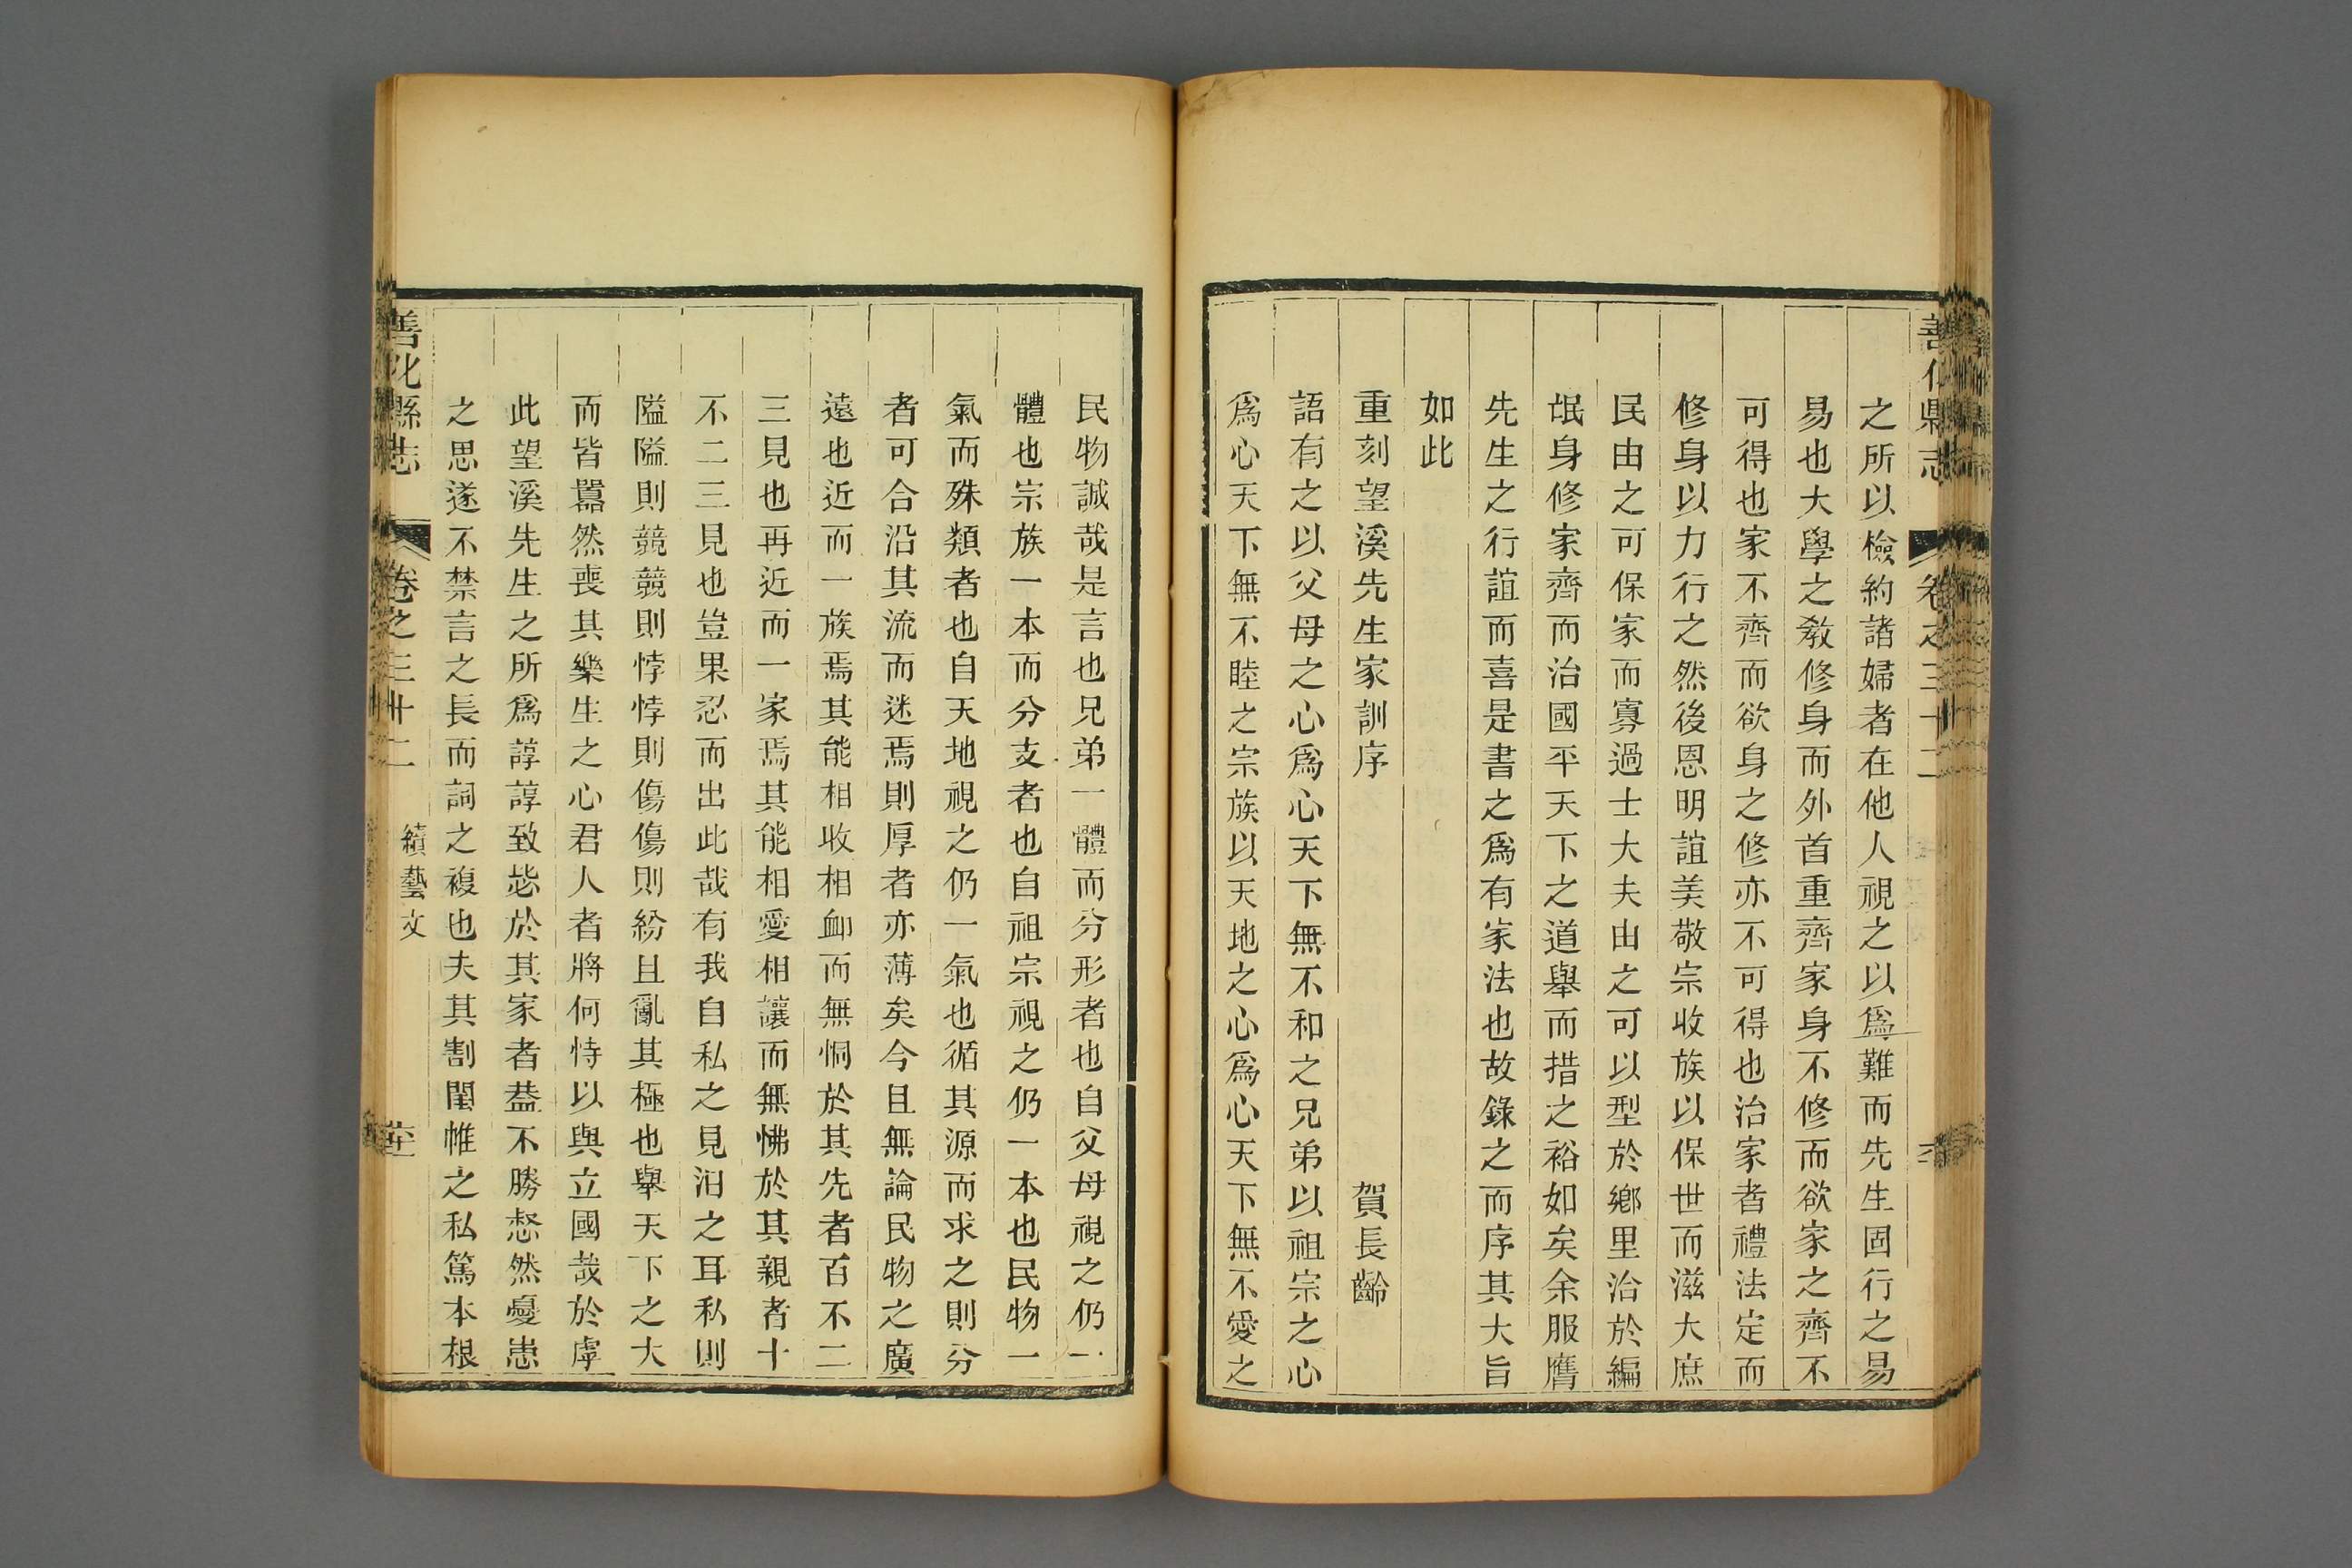 善化縣志
卷之三十二
之所以檢約諸婦者在他人視之以爲難而先生固行之易
易也大學之教修身而外首重齊家身不修而欲家之齊不
可得也家不齊而欲身之修亦不可得也治家者禮法定而
修身以力行之然後恩明誼美敬宗收族以保世而滋大庶
民由之可保家而寡過士大夫由之可以型於鄉里治於編
氓身修家齊而治國平天下之道舉而措之裕如矣余服膺
先生之行誼而喜是書之爲有家法也故錄之而序其大旨
如此
重刻望溪先生家訓序 賀長齡
語有之以父母之心爲心天下無不和之兄弟以祖宗之心
爲心天下無不睦之宗族以天地之心爲心天下無不愛之
民物誠哉是言也兄弟一體而分形者也自父母視之仍一
體也宗族一本而分支者也自祖宗視之仍一本也民物一
氣而殊類者也自天地視之仍一氣也循其源而求之則分
者可合沿其流而迷焉則厚者亦薄矣今且無論民物之廣
遠也近而一族焉其能相收相卹而無恫於其先者百不二
三見也再近而一家焉其能相愛相讓而無怫於其親者十
不二三見也豈果忍而出此哉有我自私之見汨之耳私則
隘隘則競競則悖悖則傷傷則紛且亂其極也舉天下之大
而皆囂然喪其樂生之心君人者將何恃以與立國哉於虖
此望溪先生之所爲諄諄致毖於其家者葢不勝惄然憂恚
之思遂不禁言之長而詞之複也夫其割閨帷之私篤本根
善化縣志
卷之三十二
續藝文